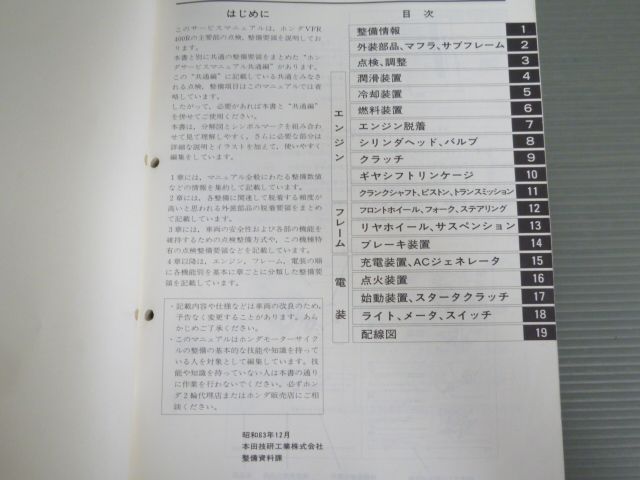 はじめに
このサービスマニュアルは、ホンダVFR
400Rの主要部の点検、整備要領を説明してお
ります。
本書と別に共通の整備要領をまとめた“ホン
ダサービスマニュアル共通編”があります。
この“共通編”に記載している共通とみなさ
れる点検、整備項目はこのマニュアルでは省
略しています。
したがって、必要があれば本書と“共通編”
を併せてご使用ください。
本書は、分解図とシンボルマークを組み合わ
せて見て理解しやすく、さらに必要な部分は
詳細な説明とイラストを加えて、使いやすく
編集をしています。
1章には、マニュアル全般にわたる整備数値
などの情報を集約して記載しています。
2章には、各整備に関連して脱着する頻度が
高いと思われる外装部品の脱着要領をまとめ
て記載しています。
3章には、車両の安全性および各部の機能を
維持するための点検整備方式や、この機種特
有の点検整備要領などを記載しています。
4章以降は、エンジン、フレーム、電装の順
に各機能別を基本に章ごとに分類した整備要
領を記載しています。
・記載内容や仕様などは車両の改良のため、
予告なく変更することがあります。あら
かじめご了承ください。
・このマニュアルはホンダモーターサイク
ルの整備の基本的な技能や知識を持って
いる人を対象として編集しています。技
能や知識を持っていない人は本書の通り
に作業を行わないでください。必ずホン
ダ2輪代理店またはホンダ販売店にご相
談ください。
昭和63年12月
本田技研工業株式会社
整備資料課
目次
整備情報 1
外装部品、マフラ、サブフレーム 2
点検、調整 3
エンジン
潤滑装置 4
冷却装置 5
燃料装置 6
エンジン脱着 7
シリンダヘッド、バルブ 8
クラッチ 9
ギヤシフトリンケージ 10
クランクシャフト、ピストン、トランスミッション 11
フレーム
フロントホイール、フォーク、ステアリング 12
リヤホイール、サスペンション 13
ブレーキ装置 14
電装
充電装置、ACジェネレータ 15
点火装置 16
始動装置、スタータクラッチ 17
ライト、メータ、スイッチ 18
配線図 19